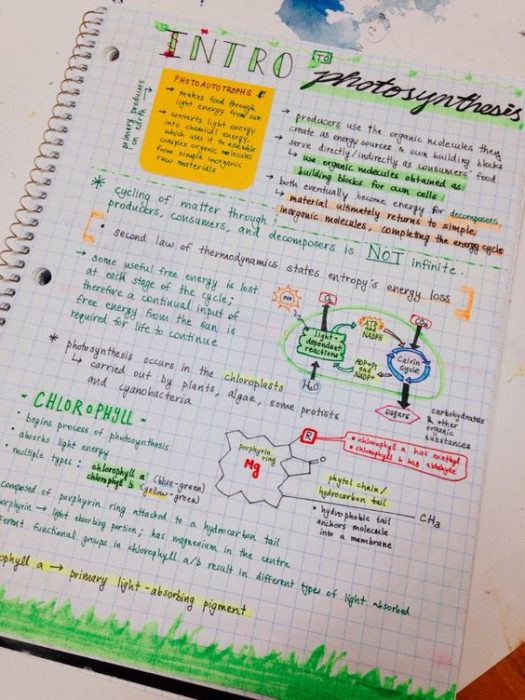 INTRO TO
photosynthesis
primary producers
on earth
PHOTOAUTOTROPHS
→ makes food through
light energy from sun
→ converts light energy
into chemical energy
which uses it to assemble
complex organic molecules
from simple inorganic
raw materials
→ producers use the organic molecules they
create as energy sources & own building blocks
→ serve directly/indirectly as consumers' food
↳ use organic molecules obtained as
building blocks for own cells
→ both eventually become energy for decomposers
↳ material ultimately returns to simple
inorganic molecules, completing the energy cycle
* cycling of matter through
producers, consumers, and decomposers is NOT infinite.
• second law of thermodynamics states entropy's energy loss
→ some useful free energy is lost
at each stage of the cycle;
therefore a continual input of
free energy from the sun is
required for life to continue
SUN
O₂
CO₂
light-
dependent
reactions
ATP
and
NADPH
ADP+Pi
and
NADP+
Calvin
Cycle
H₂O
sugars
carbohydrates
& other
organic
substances
* photosynthesis occurs in the chloroplasts
↳ carried out by plants, algae, some protists
and cyanobacteria
- CHLOROPHYLL -
• begins process of photosynthesis
• absorbs light energy
• multiple types: chlorophyll a (blue-green)
chlorophyll b (yellow-green)
porphyrin
ring
Mg
R
• chlorophyll a has methyl
• chlorophyll b has aldehyde
O
phytol chain/
hydrocarbon tail
• hydrophobic tail
anchors molecule
into a membrane
CH₃
composed of porphyrin ring attached to a hydrocarbon tail
porphyrin → light absorbing portion; has magnesium in the centre
different functional groups in chlorophyll a/b result in different types of light absorbed
ophyll a → primary light-absorbing pigment